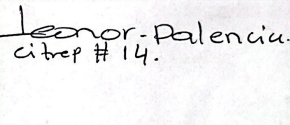 Leonor-Palencia.
citrep # 14.